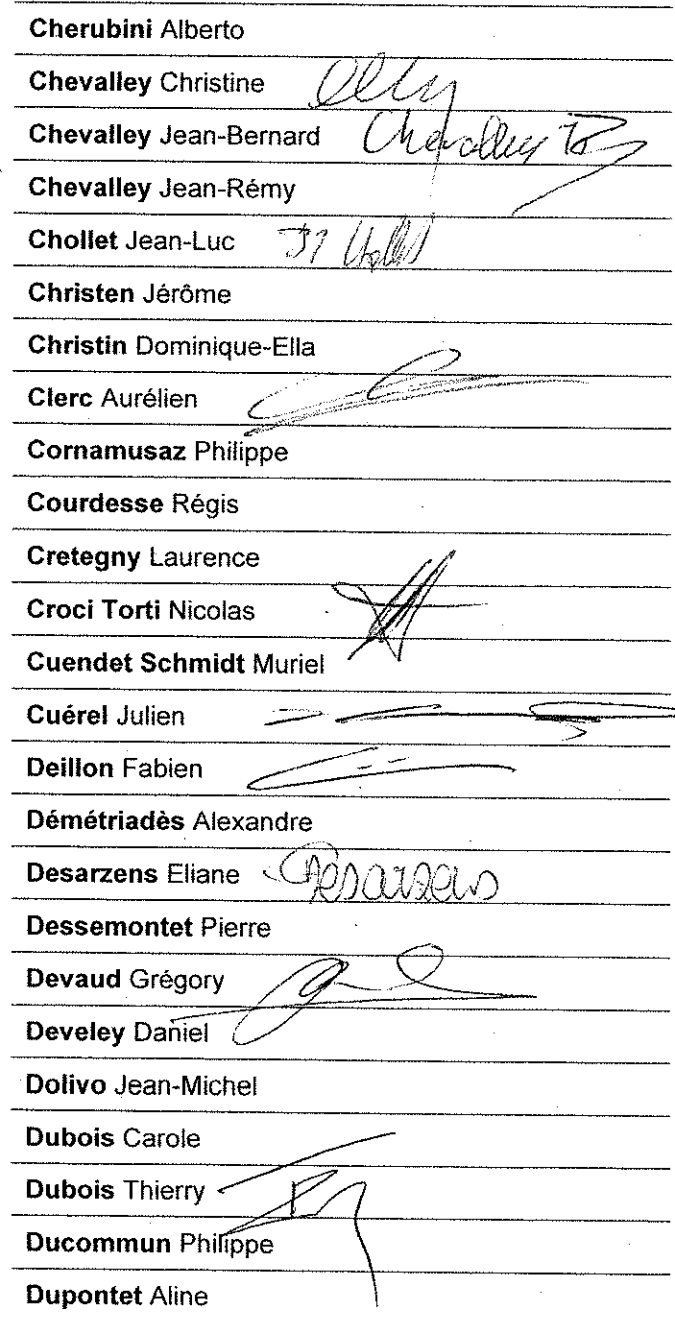 Cherubini Alberto
Chevalley Christine
Chevalley Jean-Bernard Chevalley
Chevalley Jean-Rémy
Chollet Jean-Luc
Christen Jérôme
Christin Dominique-Ella
Clerc Aurélien
Cornamusaz Philippe
Courdesse Régis
Cretegny Laurence
Croci Torti Nicolas
Cuendet Schmidt Muriel
Cuérel Julien
Deillon Fabien
Démétriadès Alexandre
Desarzens Eliane Desarzens
Dessemontet Pierre
Devaud Grégory
Develey Daniel
Dolivo Jean-Michel
Dubois Carole
Dubois Thierry
Ducommun Philippe
Dupontet Aline